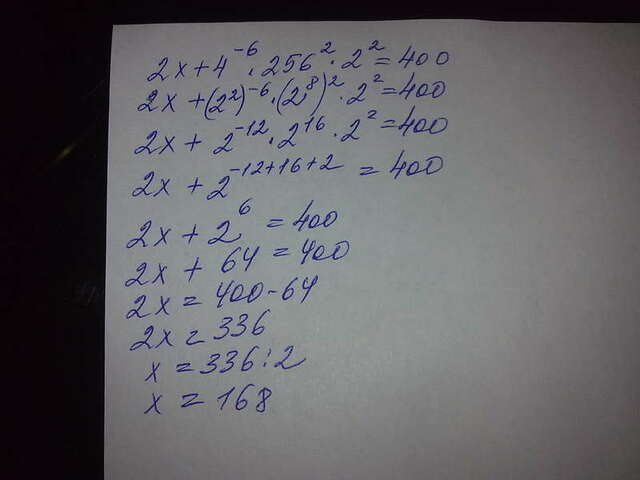 2x+4⁻⁶·256²·2²=400
2x+(2²)⁻⁶·(2⁸)²·2²=400
2x+2⁻¹²·2¹⁶·2²=400
2x+2⁻¹²⁺¹⁶⁺²=400
2x+2⁶=400
2x+64=400
2x=400-64
2x=336
x=336:2
x=168